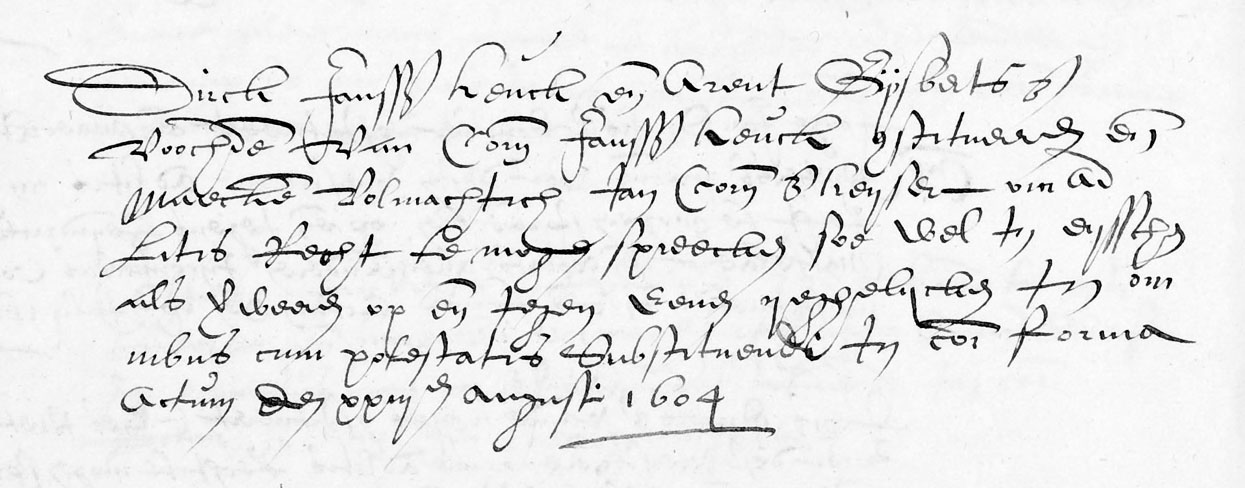 Dirck Janssz keuck en Arent Gijsberts z
Voochde Van Corn Janssz keuck 9stitueerde en
Maeckte Volmachtich Jan Corn z keyser om Ad
Litis Recht te moge spreecken soe wel in eysschen
als Verweren op en tegen Eenen yeghelycken in om
nibus cum potestatis Substituendi in coi forma
Actum den xxiij en Augusti 1604